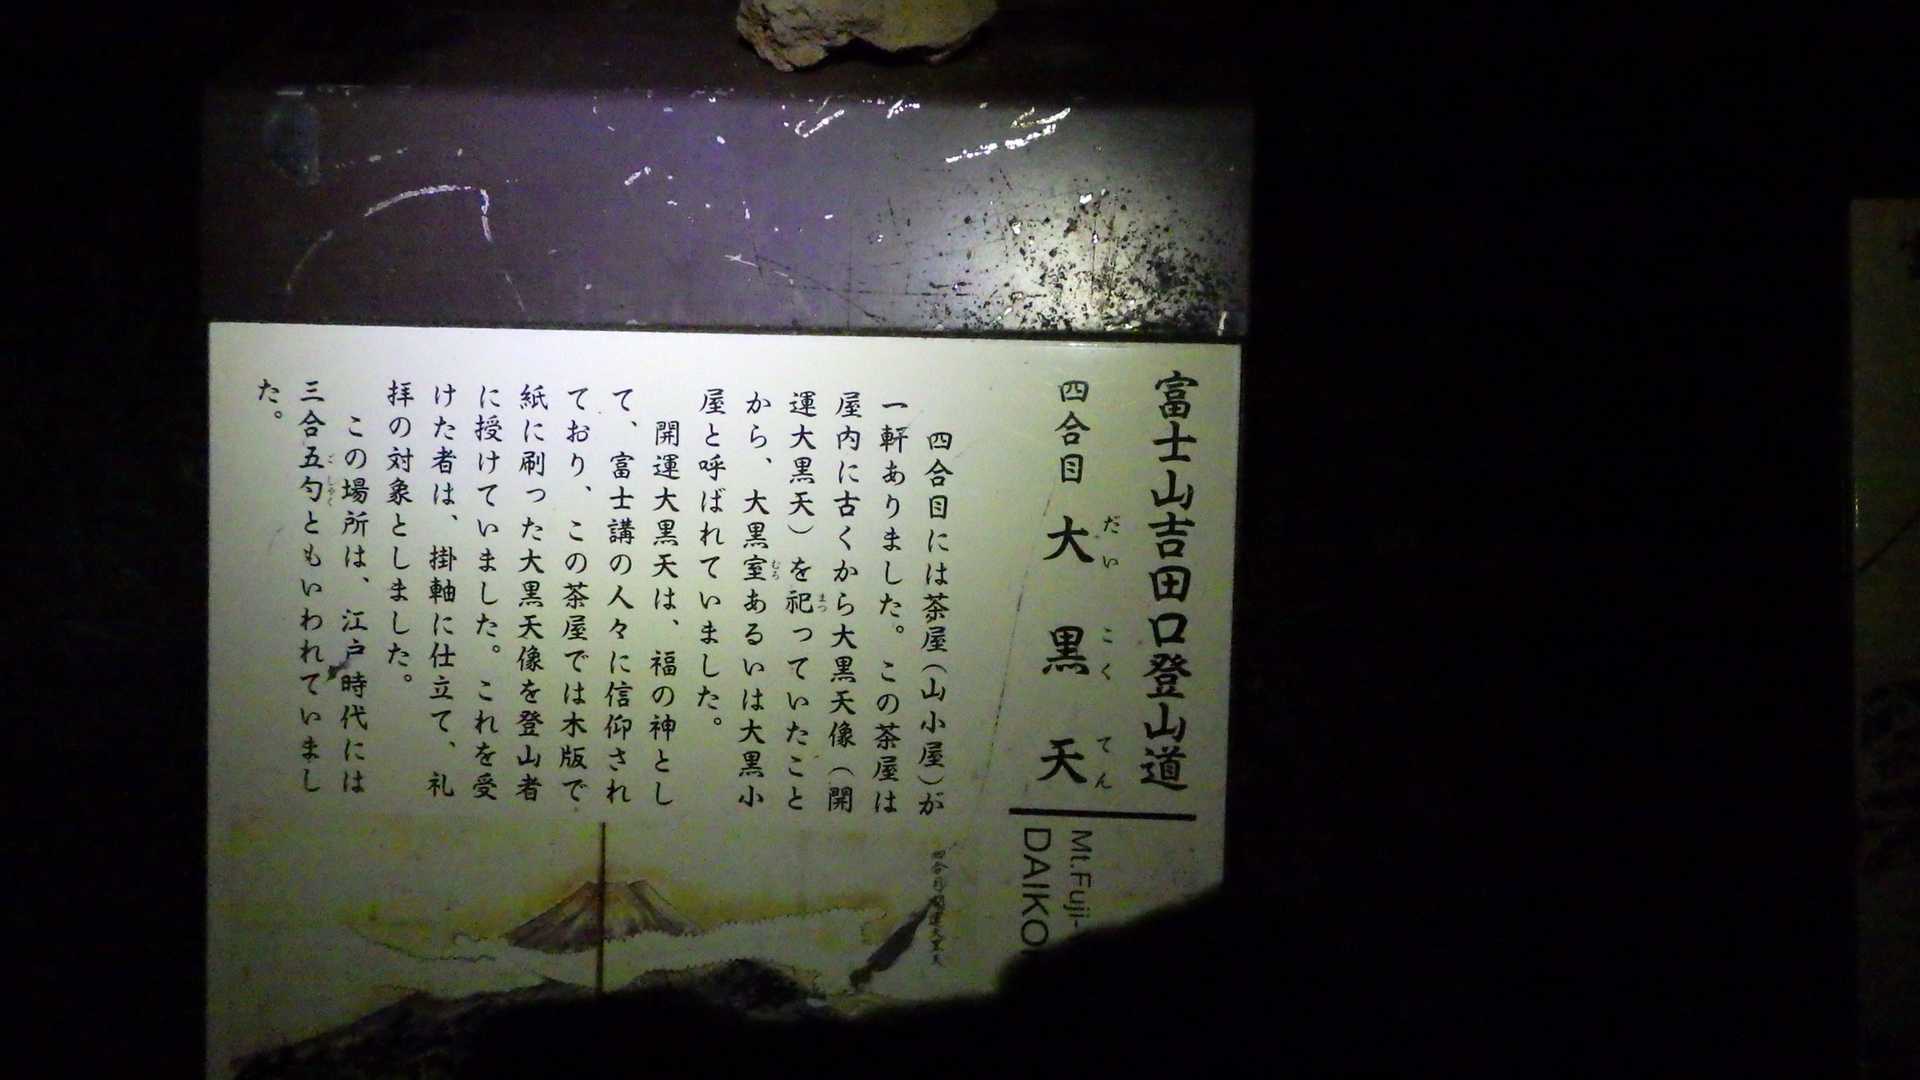 富士山吉田口登山道
四合目 大黒天
だいこくてん
四合目には茶屋(山小屋)が
一軒ありました。この茶屋は
屋内に古くから大黒天像(開
運大黒天)を祀っていたこと
まつ
から、大黒室あるいは大黒小
むろ
屋と呼ばれていました。
開運大黒天は、福の神とし
て、富士講の人々に信仰され
ており、この茶屋では木版で
紙に刷った大黒天像を登山者
に授けていました。これを受
けた者は、掛軸に仕立て、礼
拝の対象としました。
この場所は、江戸時代には
三合五勺ともいわれていまし
ごしゃく
た。
Mt.Fuji-
DAIKO
四合目開運大黒天